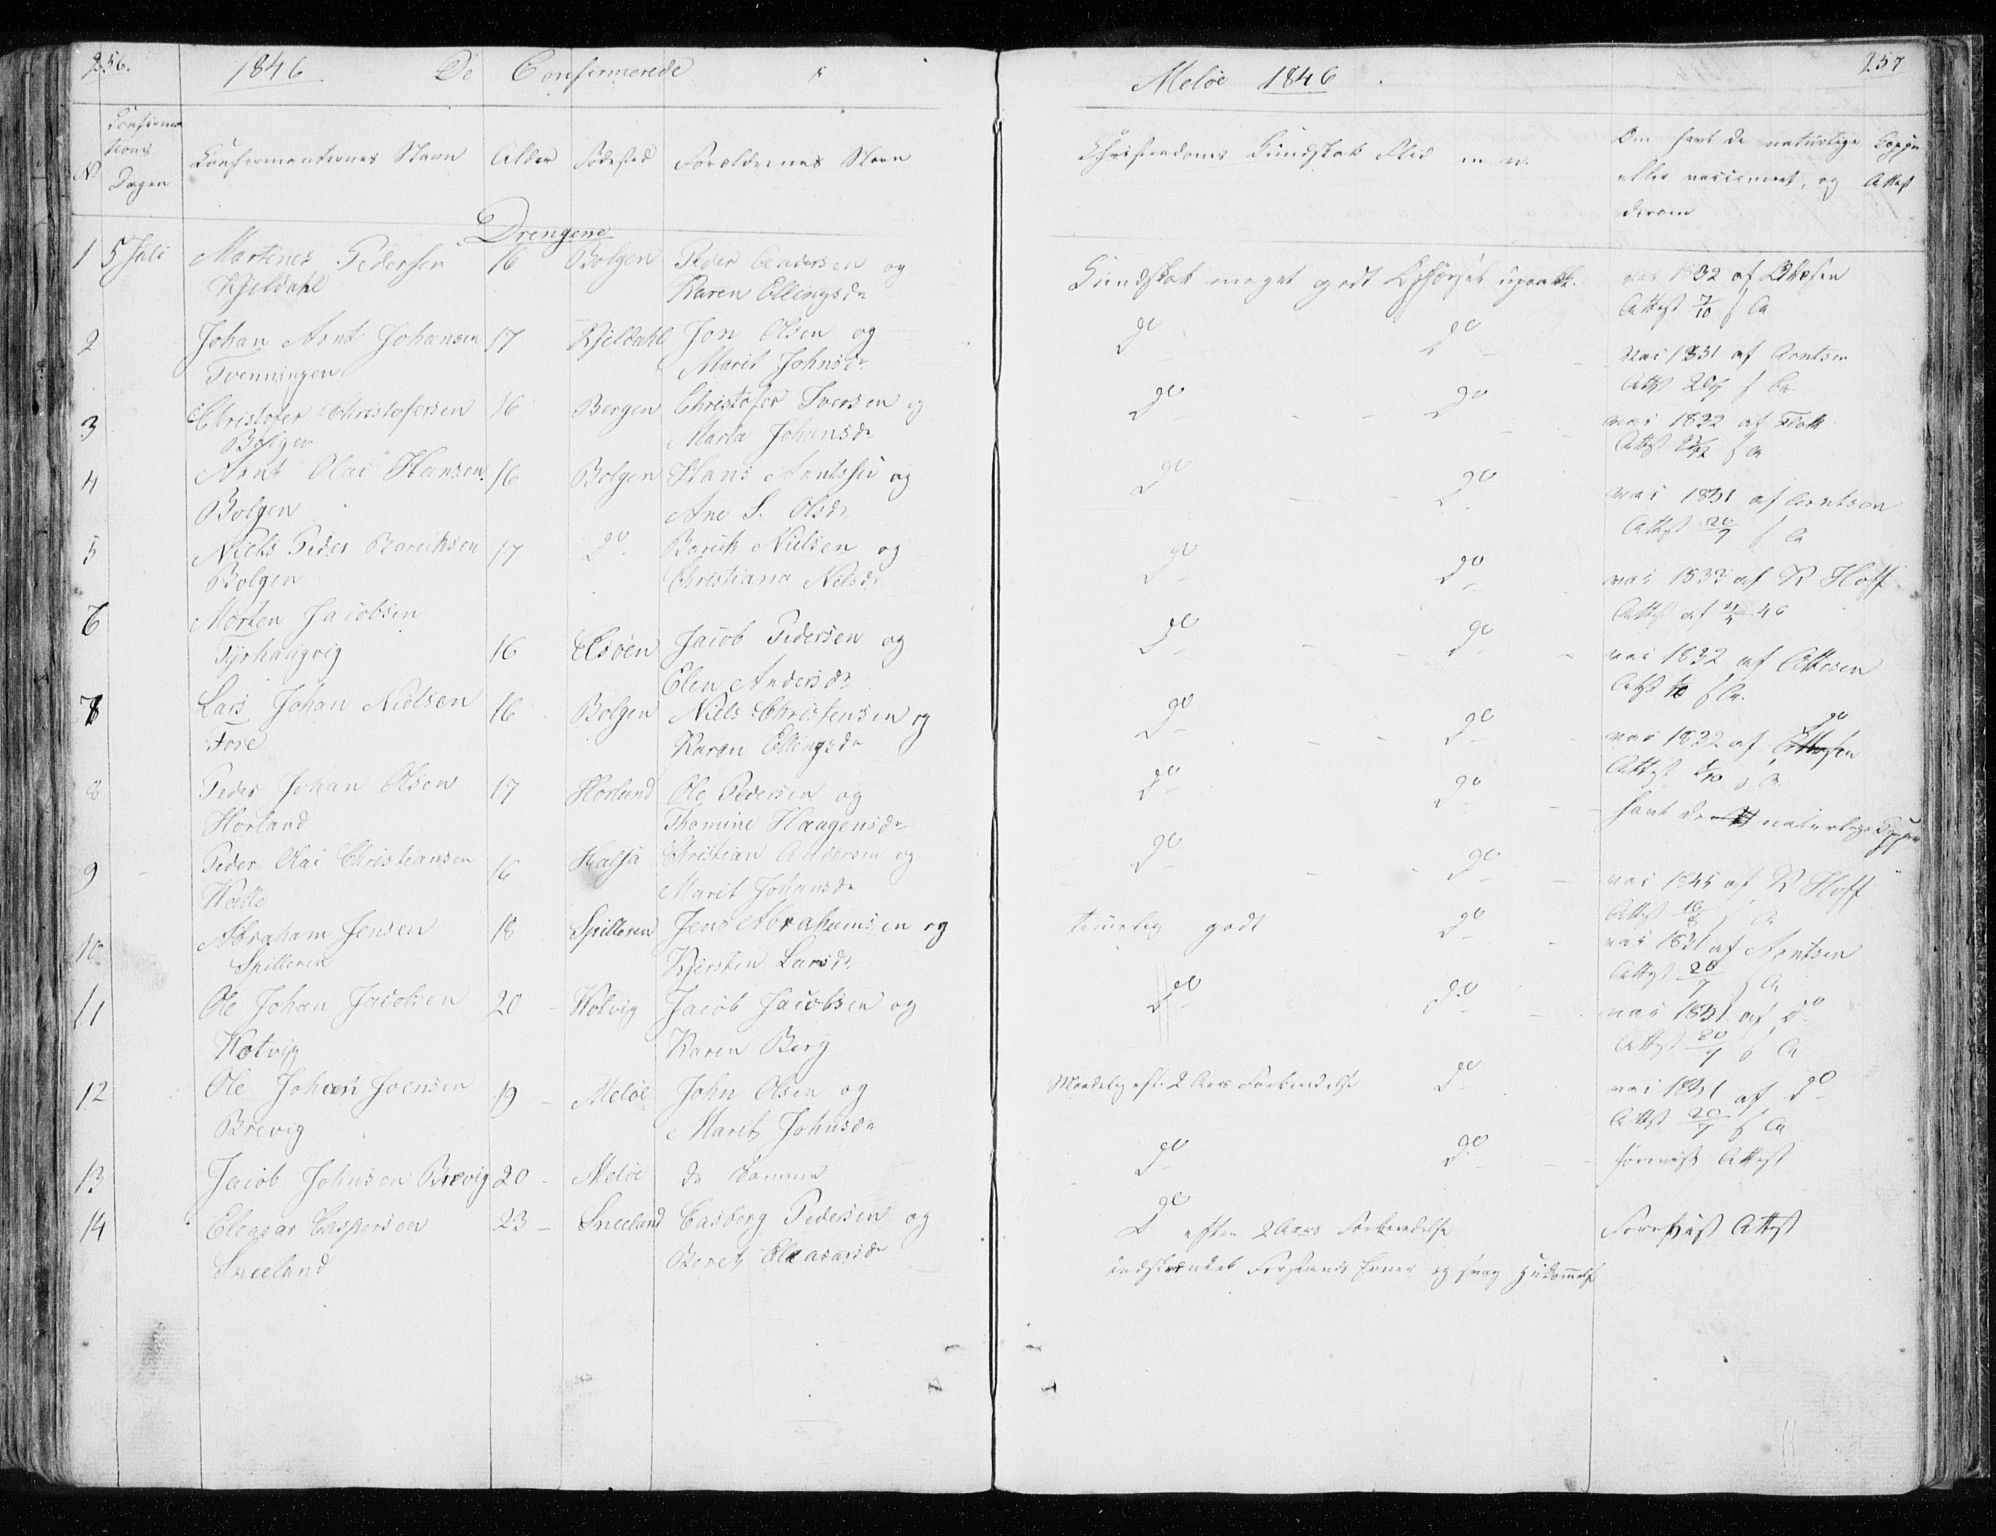 256.
1846 De Confirmerede
Confirma
tions
Dagen
No
Confirmanternes Navn Alder Fødested Forældrenes Navn
Drengene
1 5 Juli Martines Pedersen 16 Bolgen Peder Andersen og
Kjeldahl Karen Ellingsdr
2 Johan Arnt Johansen 17 Kjeldahl Jon Olsen og
Tvenningen Marit Johnsdr
3 Christofer Christofersen 16 Bergen Christofer Iversen og
Bolgen Marta Johansdr
4 Arnt Olai Hansen 16 Bolgen Hans Arntsen og
Bolgen Ane S. Olsdr
5 Niels Peder Bareichsen 17 do Barich Nielsen og
Bolgen Christiana Nielsdr
6 Morten Jacobsen
Tyrhaugvig 16 Esøen Jacob Pedersen og
Elen Andersdr
7 Lars Johan Nielsen 16 Bolgen Niels Christensen og
Fore Karen Ellingsdr
8 Peder Johan Olsen 17 Horland Ole Pedersen og
Horland Thomine Haagensdr
9 Peder Olai Christiansen 16 Halsa Christian Andersen og
Halle Marit Johansdr
10 Abraham Jensen 18 Spilleren Jens Abrahamsen og
Spilleren Kjersten Larsdr
11 Ole Johan Jacobsen 20 Kotvig Jacob Jacobsen og
Kotvig Karen Berg
12 Ole Johan Joensen 19 Meløe John Olsen og
Brevig Marit Johnsdr
13 Jacob Johnsen Brevig 20 Meløe de samme
14 Eleasar Caspersen 23 Sneeland Casberg Pedersen og
Sneeland Beret Eleasarsdr
Meløe 1846 257
Christendoms Kundskab Flid m. v. Om havt de naturlige Kopper
eller vaccineret, og Attest
derom
Kundskab meget godt Opførsel upaakl. vac 1832 af
Attest 7/10 f Ca
do do vac 1831 af Arntsen
Attst 20/7 f Ca
do do vac 1832 af
Attest f Ca
do do vac 1831 af Arntsen
Attest 20/7 f Ca
do do vac 1833 af R Hoff
Attest af 46
do do vac 1832 af
Attst f Ca.
do do vac 1832 af do
Attest f Ca
do do havt de naturlige Kopper
do do vac 1845 af R Hoff
Attest f Ca
temelig godt do vac 1831 af Arntsen
Attest 20/7 f Ca
do do vac 1831 af do
Attest 20/7 f Ca
Maadelig eft. 2 Aars Forberedelse do vac 1831 af do
Attst 20/7 f Ca
do do forevist Attest
do efter 2 Aars Forberedelse Forevist Attest
indskrænket Forstands Evner og svag Hukommelse